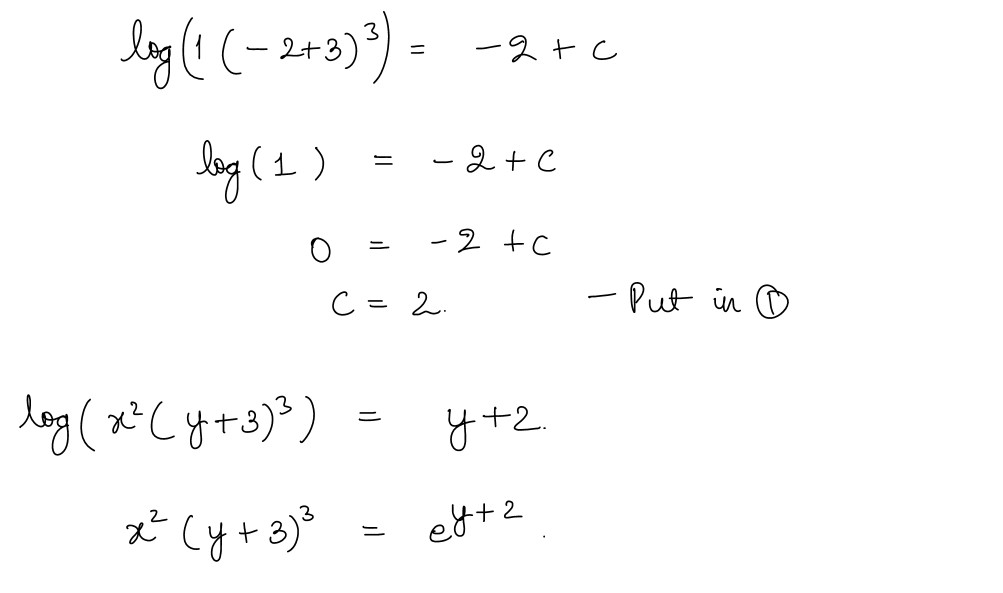 log(1(-2+3)³) = -2 + c
log(1) = -2 + c
0 = -2 + c
c = 2. — Put in ①
log(x²(y+3)³) = y+2.
x²(y+3)³ = e^{y+2}.